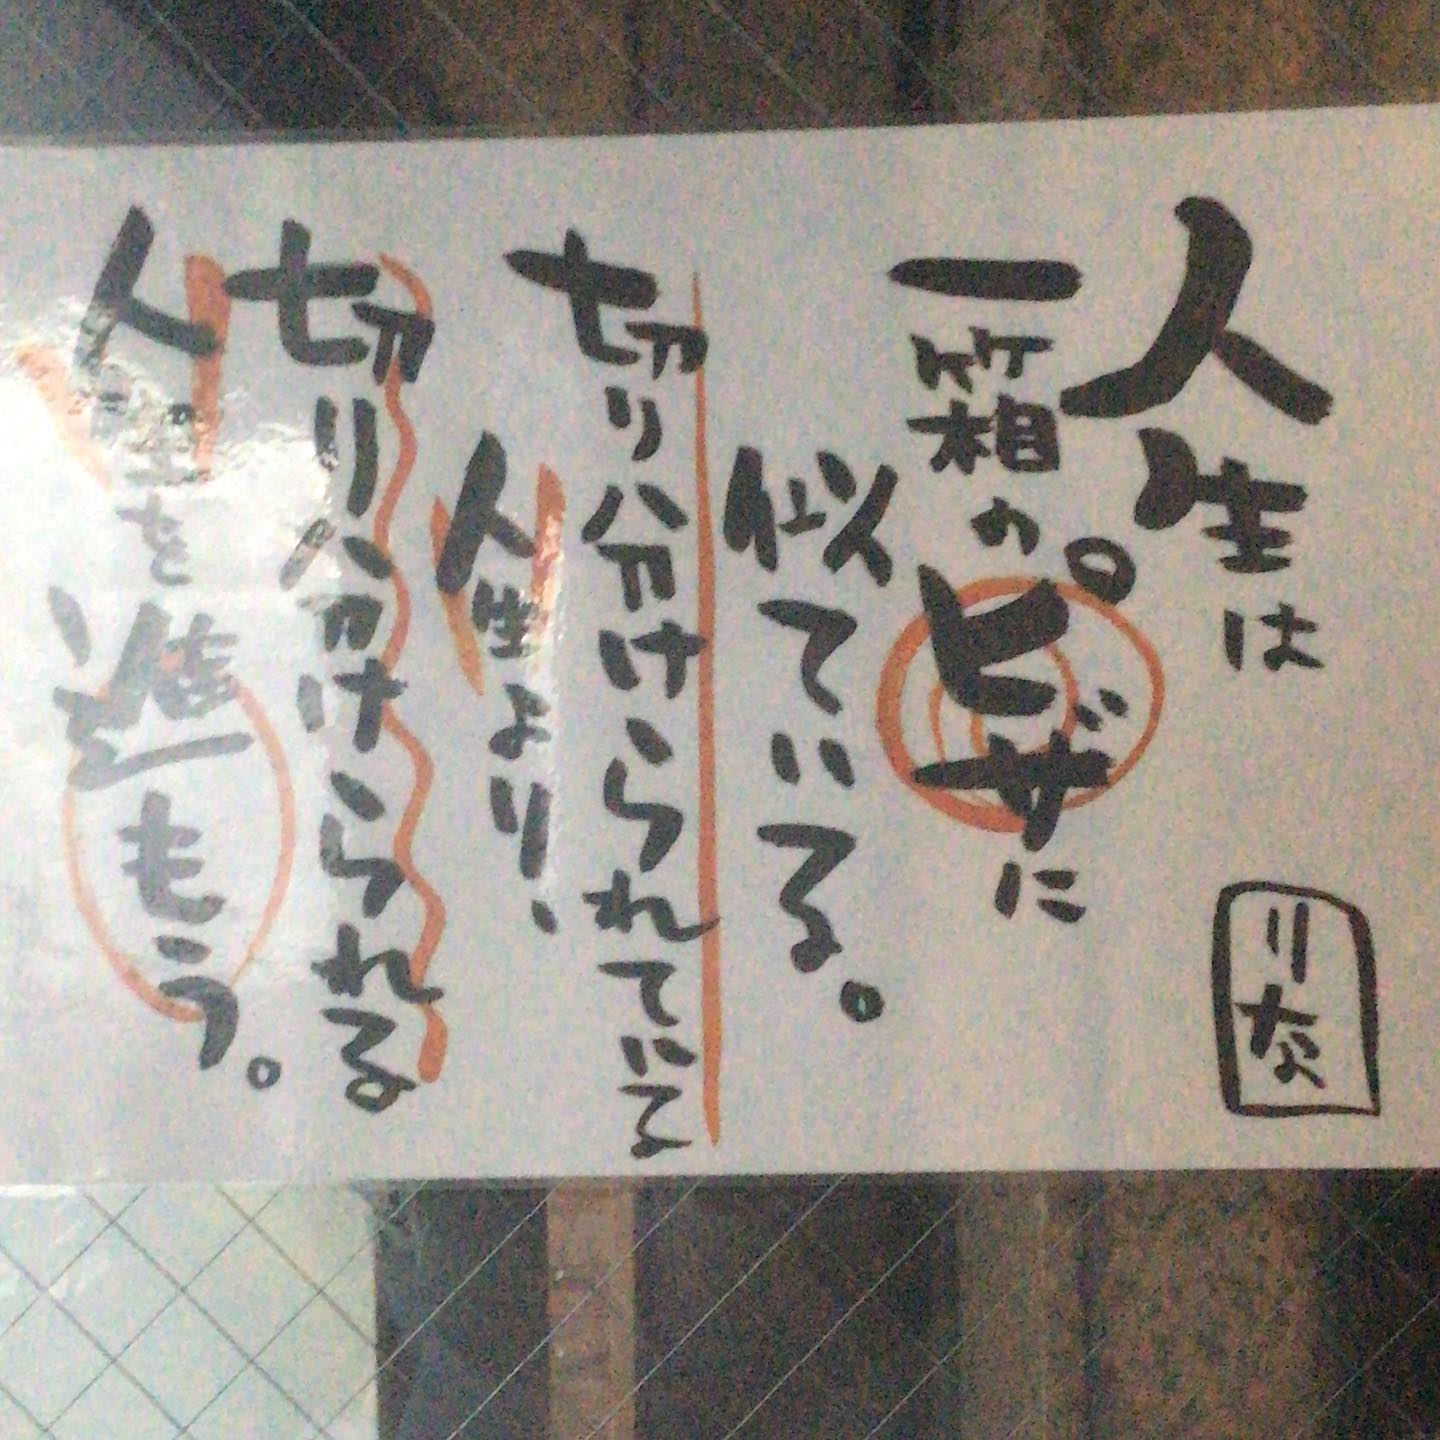 人生は
一箱のピザに
似ている。
切り分けられている
人生より、
切り分けられる
人生を進もう。
リ炎